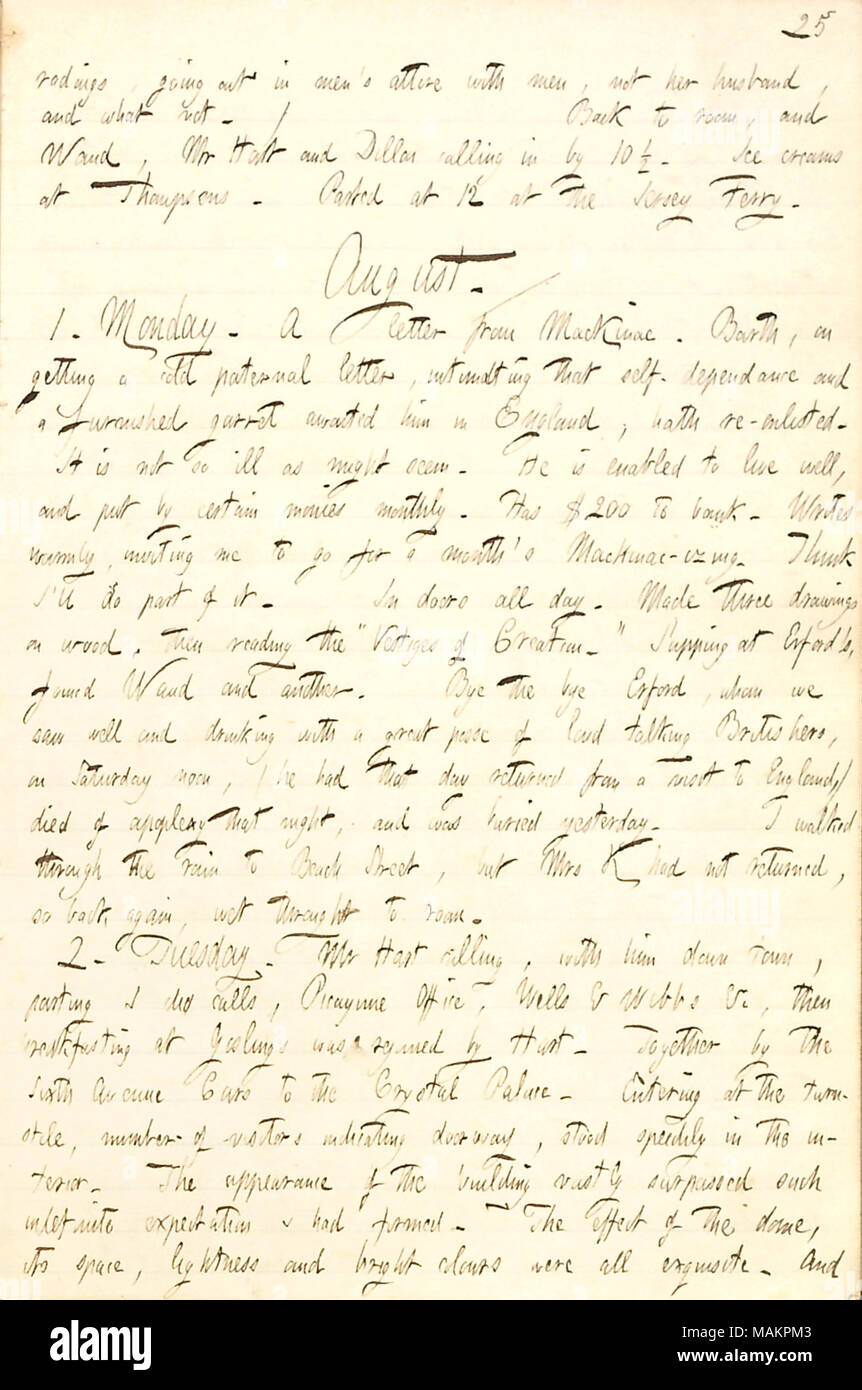 25
rodings, going out in men's attire with men, not her husband,
and what not. / Back to room, and
Waud, Mr Hart and Dillon calling in by 10 ½. Ice creams
at Thompsons. Parted at 12 at the Jersey Ferry.
August.
1. Monday. A letter from Mackinac. Barth, on
getting a cold paternal letter, intimating that self-dependance and
a furnished garret awaited him in England, hath re-enlisted.
It is not so ill as might seem. He is enabled to live well,
and put by certain monies monthly. Has $200 to bank. Writes
warmly, inviting me to go for a month's Mackinac-izing. Think
I'll do part of it. In doors all day. Made three drawings
on wood, then reading the "Vestiges of Creation." Supping at Erford's,
joined Waud and another. Bye the bye Erford, whom we
saw well and drinking with a great posse of loud talking Britishers,
on Saturday noon, (he had that day returned from a visit to England,)
died of apoplexy that night, and was buried yesterday. I walked
through the rain to Beach Street, but Mrs K had not returned,
so back again, wet through to room.
2. Tuesday. Mr Hart calling, with him down town,
parting I did calls, Picayune Office, Wells & Webbs &c, then
breakfasting at Goslings was rejoined by Hart. Together by the
Sixth Avenue Cars to the Crystal Palace. Entering at the turn-
stile, number-of visitors indicating doorway, stood speedily in the in-
terior. The appearance of the building vastly surpassed such
indefinite expectation I had formed. The effect of the dome,
its space, lightness and bright colours were all exquisite. And
alamy
Image ID: MAKPM3
www.alamy.com